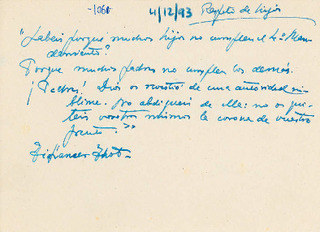 -1060 4/12/93 Respeto de hijos
"¿Sabéis porqué muchos hijos no cumplen el 4º Man-
damiento?
Porque muchos padres no cumplen los demás.
¡Padres! Dios os revistió de una autoridad su-
blime. No abdiquéis de ella: no os qui-
téis vosotros mismos la corona de vuestra
frente.>>